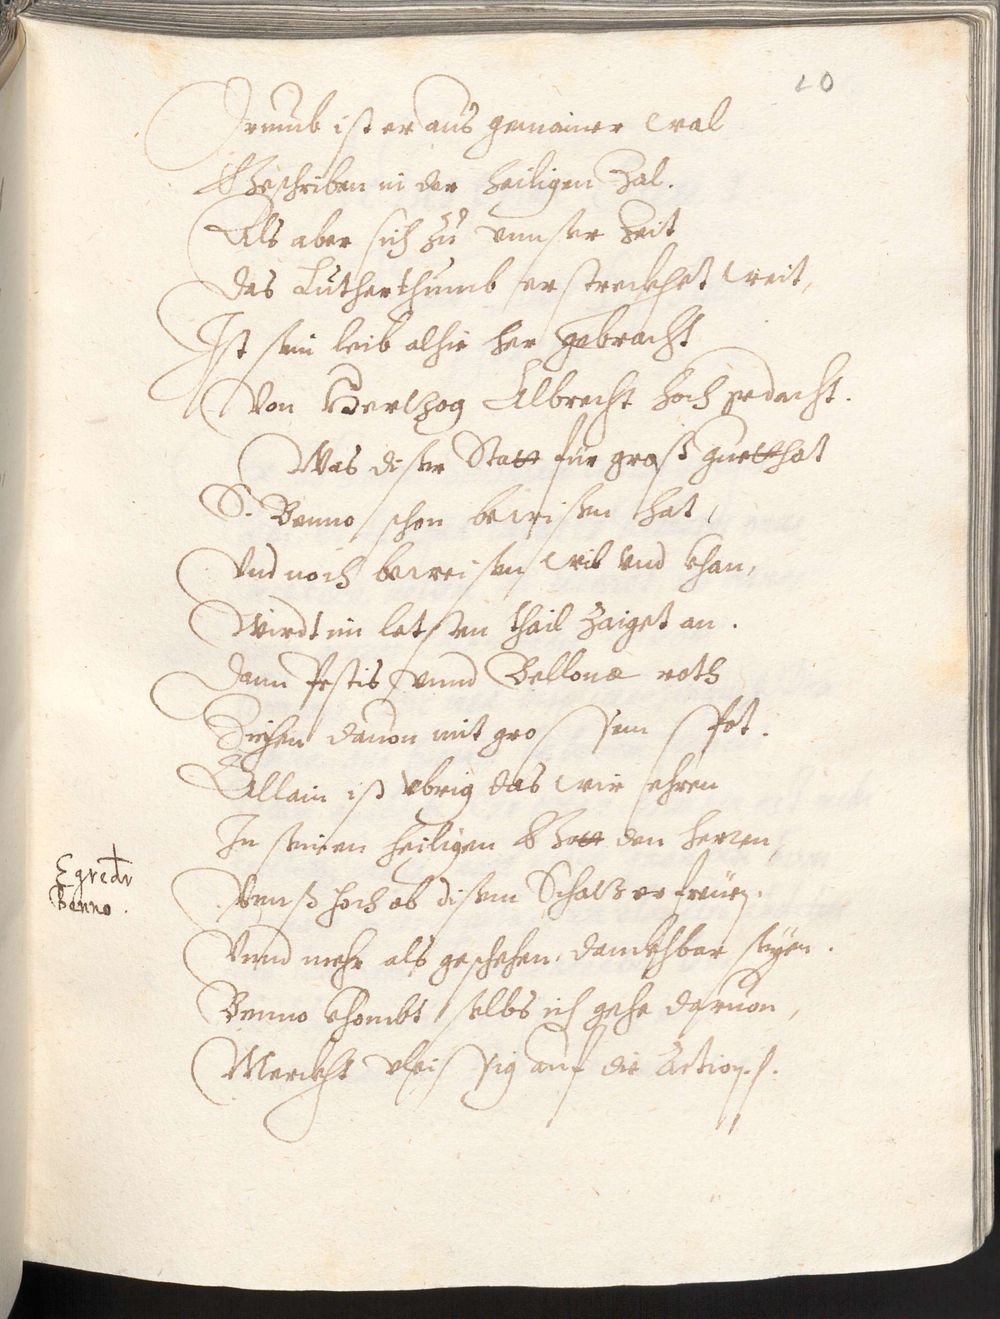 20
Drumb ist er aus gemainer wal
Gheschriben in der heiligen Zal.
Als aber sich zu unnser Zeit
Das Lutherthumb erstreckhet weit,
Ist sein leib alhie her gebracht
Von Hertzog Albrecht hoch gedacht.
Was diser Statt für groß guetthat
S. Benno schon bewisen hat,
Und noch beweisen wil und khan,
Wirdt im letsten thail zaiget an.
Dann Pestis unnd Bellonæ roth
Ziehen davon mit grossem spot.
Allain ist ybrig das wir ehren
In seinen heiligen Ghott den herren,
Unnß hoch ob disem Schatz erfreuen.
Unnd mehr als geschehen, danckhbar seyen.
Benno khombt selbs ich gehe darvon,
Merckht vleissig auf die Action.
Egredr
Benno.